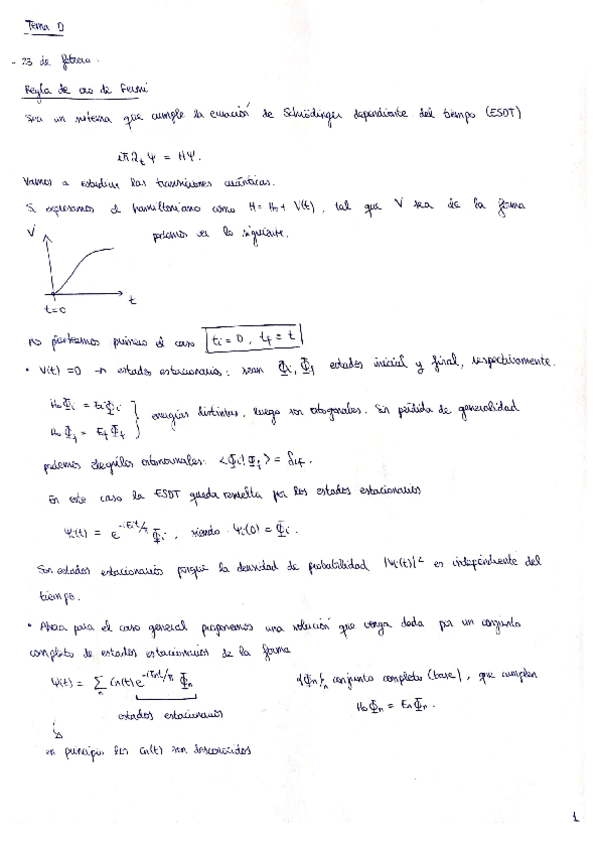 Tema 0
- 23 de febrero.
Regla de oro de Fermi
Sea un sistema que cumple la ecuación de Schrödinger dependiente del tiempo (ESDT)
iħ∂ₜΨ = HΨ.
Vamos a estudiar las transiciones cuánticas.
Si expresamos el hamiltoniano como H = H₀ + V(t), tal que V sea de la forma
V
podemos ver lo siguiente.
t=0
t
nos planteamos primero el caso tᵢ = 0, t_f = t
• V(t) = 0 → estados estacionarios: sean Φᵢ, Φ_f estados inicial y final, respectivamente.
H₀Φᵢ = EᵢΦᵢ
H₀Φ_f = E_fΦ_f
} energías distintas, luego son ortogonales. Sin pérdida de generalidad
podemos elegirlos ortonormales: <Φᵢ|Φ_f> = δ_if.
En este caso la ESDT queda resuelta por los estados estacionarios
Ψᵢ(t) = e^{-iEᵢt/ħ} Φᵢ, siendo Ψᵢ(0) = Φᵢ.
Son estados estacionarios porque la densidad de probabilidad |Ψᵢ(t)|² es independiente del
tiempo.
• Ahora para el caso general proponemos una solución que venga dada por un conjunto
completo de estados estacionarios de la forma
Ψ(t) = ∑ₙ Cₙ(t) e^{-iEₙt/ħ} Φₙ
{Φₙ}ₙ conjunto completo (base), que cumplen
estados estacionarios
H₀Φₙ = EₙΦₙ.
en principio los Cₙ(t) son desconocidos
1